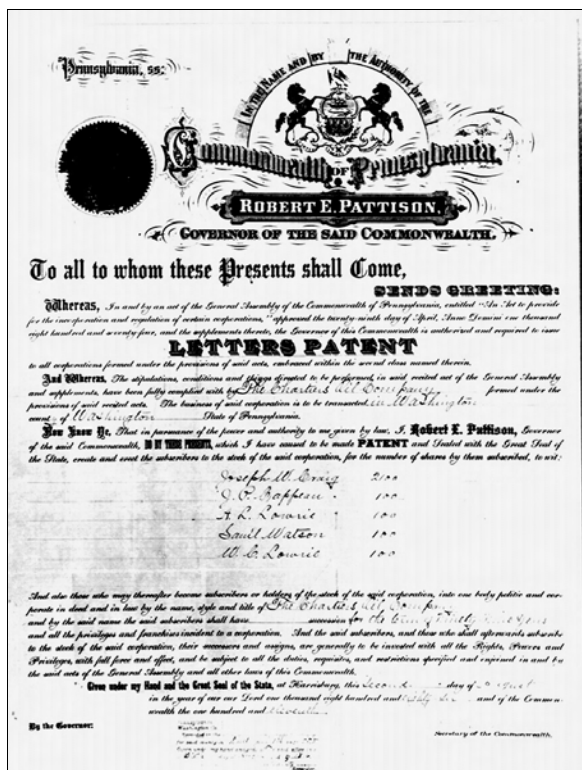 Pennsylvania, ss:
IN THE NAME AND BY THE AUTHORITY OF THE
Commonwealth OF Pennsylvania,
ROBERT E. PATTISON,
GOVERNOR OF THE SAID COMMONWEALTH.
To all to whom these Presents shall Come,
SENDS GREETING:
Whereas, In and by an act of the General Assembly of the Commonwealth of Pennsylvania, entitled "An Act to provide
for the incorporation and regulation of certain corporations," approved the twenty-ninth day of April, Anno Domini one thousand
eight hundred and seventy-four, and the supplements thereto, the Governor of this Commonwealth is authorized and required to issue
LETTERS PATENT
to all corporations formed under the provisions of said acts, embraced within the second class named therein.
And Whereas, The stipulations, conditions and things directed to be performed in said recited act of the General Assembly
and supplements, have been fully complied with by The Chartiers Oil Company formed under the
provisions of said recited acts. The business of said corporation is to be transacted in Washington
county of Washington State of Pennsylvania.
Now Know Ye, That in pursuance of the power and authority to me given by law, I, Robert E. Pattison, Governor
of the said Commonwealth, DO BY THESE PRESENTS, which I have caused to be made PATENT and Sealed with the Great Seal of
the State, create and erect the subscribers to the stock of the said corporation, for the number of shares by them subscribed, to wit:
Joseph W. Craig 2100
100
A. L. Lowrie 100
Watson 100
W. C. Lowrie 100
And also those who may thereafter become subscribers or holders of the stock of the said corporation, into one body politic and cor-
porate in deed and in law by the name, style and title of The Chartiers Oil Company
and by the said name the said subscribers shall have succession for the term of Ninety Nine Years
and all the privileges and franchises incident to a corporation. And the said subscribers, and those who shall afterwards subscribe
to the stock of the said corporation, their successors and assigns, are generally to be invested with all the Rights, Powers and
Privileges, with full force and effect, and be subject to all the duties, requisites, and restrictions specified and enjoined in and by
the said acts of the General Assembly and all other laws of this Commonwealth.
Given under my Hand and the Great Seal of the State, at Harrisburg, this Second day of August
in the year of our Lord one thousand eight hundred and eighty six and of the Common-
wealth the one hundred and eleventh
By the Governor:
Secretary of the Commonwealth.